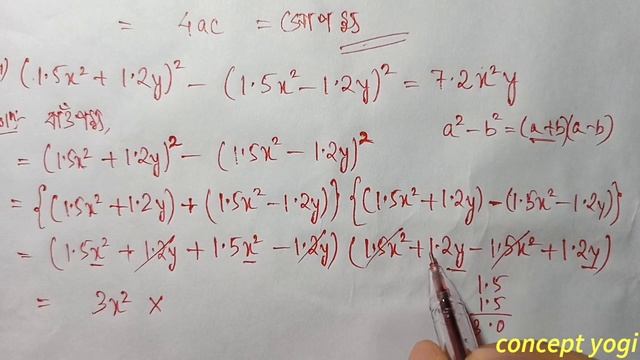 = 4ac = সোপক্ষ
(1.5x² + 1.2y)² - (1.5x² - 1.2y)² = 7.2x²y
বাঁপক্ষ,
a² - b² = (a+b)(a-b)
= (1.5x² + 1.2y)² - (1.5x² - 1.2y)²
= {(1.5x² + 1.2y) + (1.5x² - 1.2y)} {(1.5x² + 1.2y) - (1.5x² - 1.2y)}
= (1.5x² + 1.2y + 1.5x² - 1.2y) (1.5x² + 1.2y - 1.5x² + 1.2y)
1.5
1.5
3.0
= 3x² ×
concept yogi